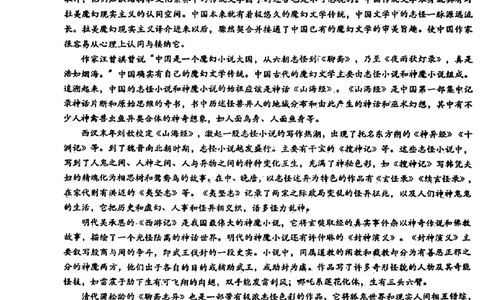 拉美魔幻现实主义的认同空间。中国本来就有着极悠久的魔幻文学传统，中国文学中的志怪一脉源远流
长。拉美魔幻现实主义译介进来以后，骤然契合并接通了中国已有的魔幻文学的审美旨趣。使中国作家
很容易从心理上认同与接纳它。
作家汪曾祺曾说“中国是一个魔幻小说大国，从六朝志怪到《聊斋》，乃至《夜雨秋灯录》，真是
浩如烟海。”中国确实有自己的魔幻文学传统。中国古代的魔幻文学主要由志怪小说和神魔小说组成。
追溯起来，中国的志怪小说和神魔小说的始祖应该是神话《山海经》。《山海经》是中国第一部集中记
录神话片断和原始思维的奇书，书中历述怪兽异人的地域分布和由此产生的神话和巫术幻想，其中有不
少人神禽兽虫鱼异类合体的神奇想象，如人面鸟身、人面鱼身等。
西汉末年刘歆校定《山海经》，激起一股志怪小说的写作热潮，出现了托名东方朔的《神异经》《十
洲记》等。到了魏晋南北朝时期，志怪小说越发盛行。主要有干宝的《搜神记》等。这些志怪小说中，
写到了人鬼之间、人神之间、人与异物之间的种种变化互生，充满了神秘色彩，如《搜神记》写韩凭夫
妇的精魂化为相思树和鸳鸯鸟的故事。在中、晚唐，以志怪述异为特色的作品有《玄怪录》《续玄怪录》，
在宋代则有洪迈的《夷坚志》等。《夷坚志》记录了两宋之际政局变乱的怪异征兆，以及人们神神鬼鬼
的生活，它把历史和虚幻、人事和怪异相交织，语多怪力乱神。
明代吴承恩的《西游记》是我国最伟大的神魔小说，它将玄奘取经的真实事件杂以神奇传说和佛教
故事，描绘了一个光怪陆离的神话世界。明代的神魔小说还有许仲琳的《封神演义》。《封神演义》主
要叙写殷商与周的争斗，即武王伐纣的一段史实。小说中，同属道教的阐教和截教却分为善恶正邪之
分的神魔两方，他们出于各自的目的或辅助武王，或助纣为虐。作品写了许多奇形怪貌的人物及其奇能
怪技，如雷震子肋下生有可飞翔的肉翅，双手能发雷刮风；哪吒系莲花化体，生有三头六臂。
清代蒲松龄的《聊斋志异》也是一部带有极浓志怪色彩的作品，它将狐鬼世界和现实人间相互错综，